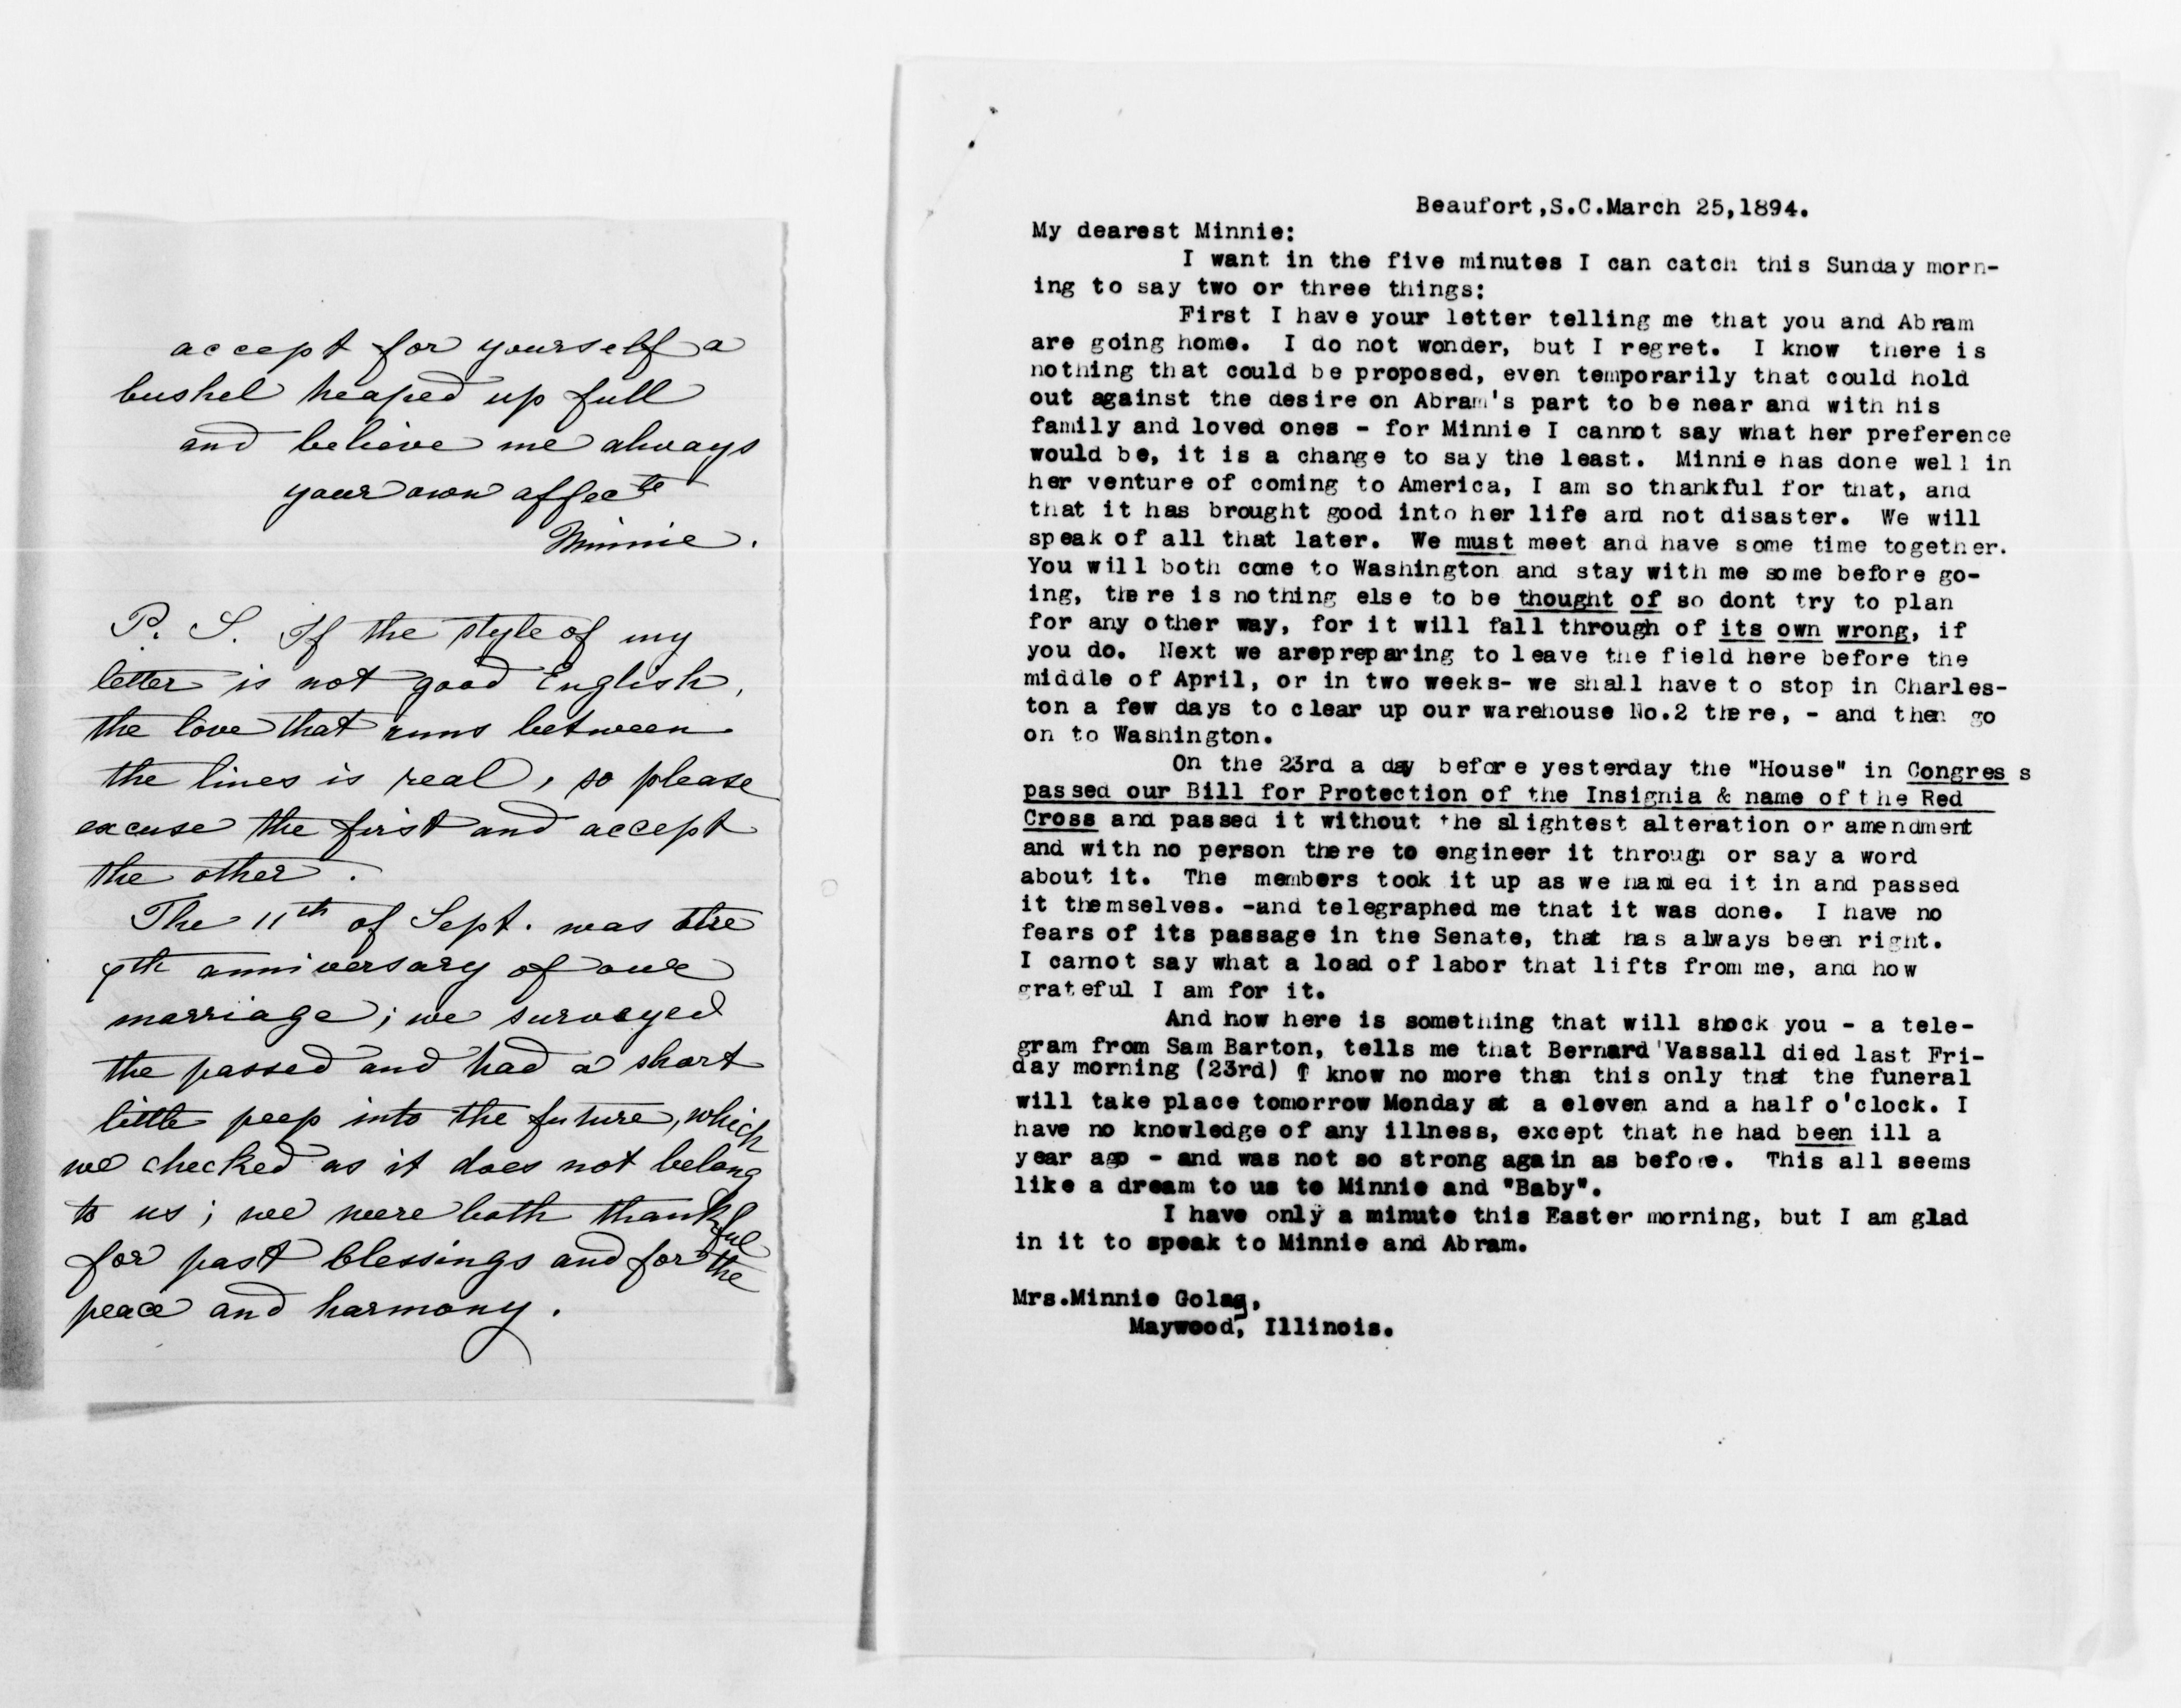 accept for yourself a
bushel heaped up full
and believe me always
your own affecte
Minnie.
P. S. If the style of my
letter is not good English,
the love that runs between
the lines is real, so please
excuse the first and accept
the other.
The 11th of Sept. was the
9th anniversary of our
marriage; we surveyed
the passed and had a short
little peep into the future, which
we checked as it does not belong
to us; we were both thankful
for past blessings and for the
peace and harmony.
Beaufort,S.C.March 25,1894.
My dearest Minnie:
I want in the five minutes I can catch this Sunday morn-
ing to say two or three things:
First I have your letter telling me that you and Abram
are going home. I do not wonder, but I regret. I know there is
nothing that could be proposed, even temporarily that could hold
out against the desire on Abram's part to be near and with his
family and loved ones - for Minnie I cannot say what her preference
would be, it is a change to say the least. Minnie has done well in
her venture of coming to America, I am so thankful for that, and
that it has brought good into her life and not disaster. We will
speak of all that later. We must meet and have some time together.
You will both come to Washington and stay with me some before go-
ing, there is nothing else to be thought of so dont try to plan
for any other way, for it will fall through of its own wrong, if
you do. Next we arepreparing to leave the field here before the
middle of April, or in two weeks- we shall have to stop in Charles-
ton a few days to clear up our warehouse No.2 there, - and then go
on to Washington.
On the 23rd a day before yesterday the "House" in Congress
passed our Bill for Protection of the Insignia & name of the Red
Cross and passed it without the slightest alteration or amendment
and with no person there to engineer it through or say a word
about it. The members took it up as we handed it in and passed
it themselves. -and telegraphed me that it was done. I have no
fears of its passage in the Senate, that has always been right.
I cannot say what a load of labor that lifts from me, and how
grateful I am for it.
And now here is something that will shock you - a tele-
gram from Sam Barton, tells me that Bernard Vassall died last Fri-
day morning (23rd) I know no more than this only that the funeral
will take place tomorrow Monday at a eleven and a half o'clock. I
have no knowledge of any illness, except that he had been ill a
year ago - and was not so strong again as before. This all seems
like a dream to us to Minnie and "Baby".
I have only a minute this Easter morning, but I am glad
in it to speak to Minnie and Abram.
Mrs.Minnie Golay,
Maywood, Illinois.